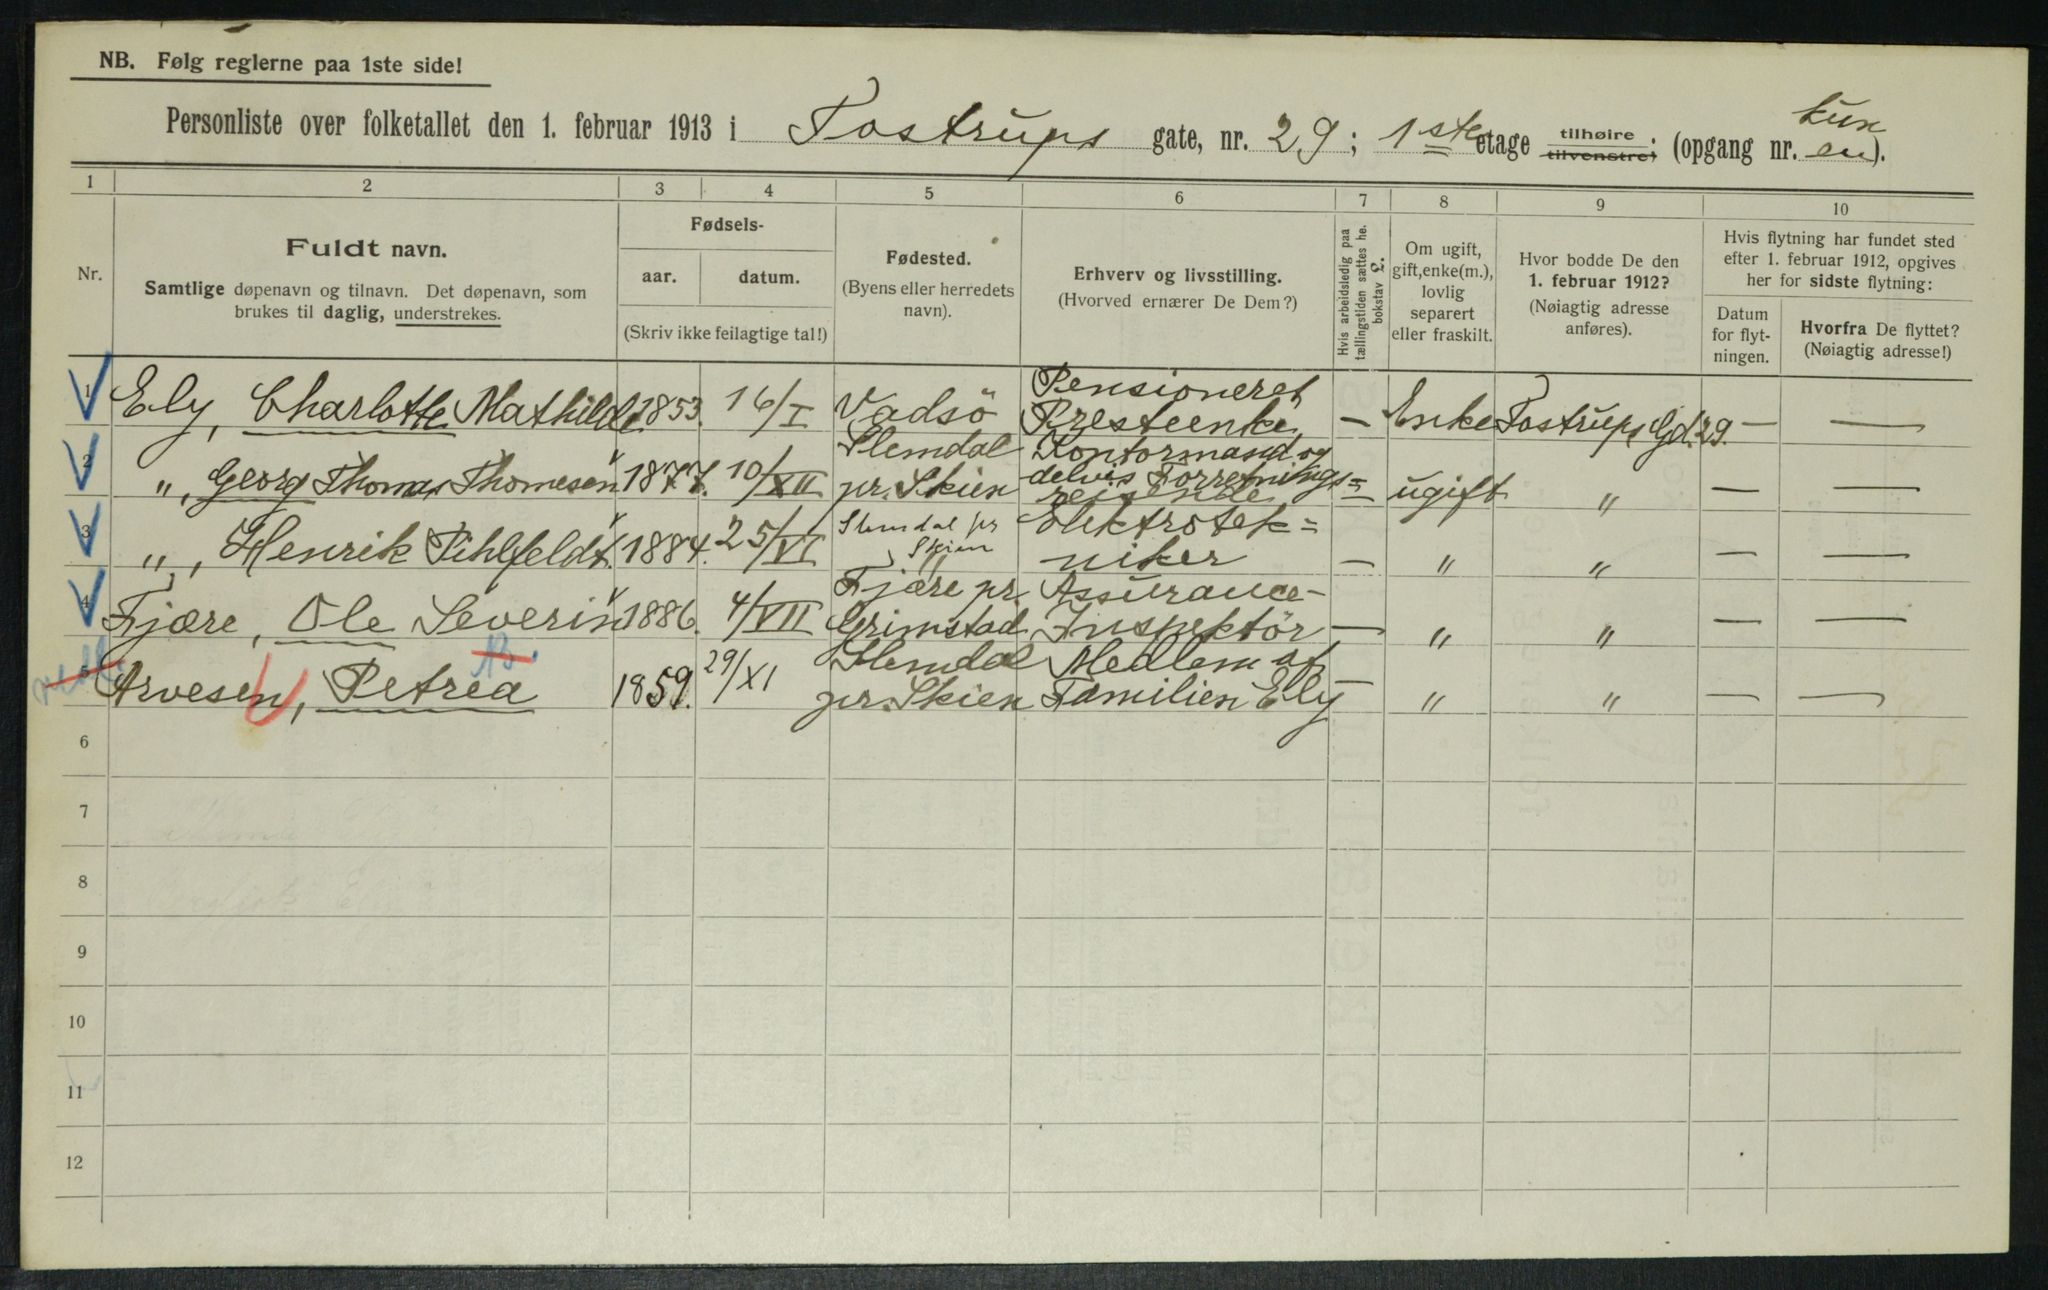 NB. Følg reglerne paa 1ste side!
Personliste over folketallet den 1. februar 1913 i Tostrups gate, nr. 29; 1ste etage tilhøire tilvenstre; (opgang nr. kun en).
1 2 3 4 5 6 7 8 9 10
Nr.
Fuldt navn.
Samtlige døpenavn og tilnavn. Det døpenavn, som
brukes til daglig, understrekes.
Fødsels-
aar. datum.
(Skriv ikke feilagtige tal!)
Fødested.
(Byens eller herredets
navn).
Erhverv og livsstilling.
(Hvorved ernærer De Dem?)
Hvis arbeidsledig paa
tællingstiden sættes he.
bokstav L.
Om ugift,
gift, enke(m.),
lovlig
separert
eller fraskilt.
Hvor bodde De den
1. februar 1912?
(Nøiagtig adresse
anføres).
Hvis flytning har fundet sted
efter 1. februar 1912, opgives
her for sidste flytning:
Datum
for flyt-
ningen.
Hvorfra De flyttet?
(Nøiagtig adresse!)
1 Ely, Charlotte Mathilde 1853. 16/I Vadsö Pensioneret Presteenke — Enke Tostrups Gd. 29. — —
2 „ , Georg Thomas Thomesen 1877. 10/XII Slemdal pr. Skien Kontormand og delvis Forretningsreisende = ugift „ — —
3 „ , Henrik Pihlfeldt. 1884. 25/VI Slemdal pr Skien Elektrotek= niker — „ „ — —
4 Fjære, Ole Severin 1886. 4/VII Fjære pr. Grimstad Assurance- Inspektör — „ „ — —
5 Arvesen, Petrea 1859. 29/XI Slemdal pr. Skien Medlem af Familien Ely — „ „ — —
6
7
8
9
10
11
12